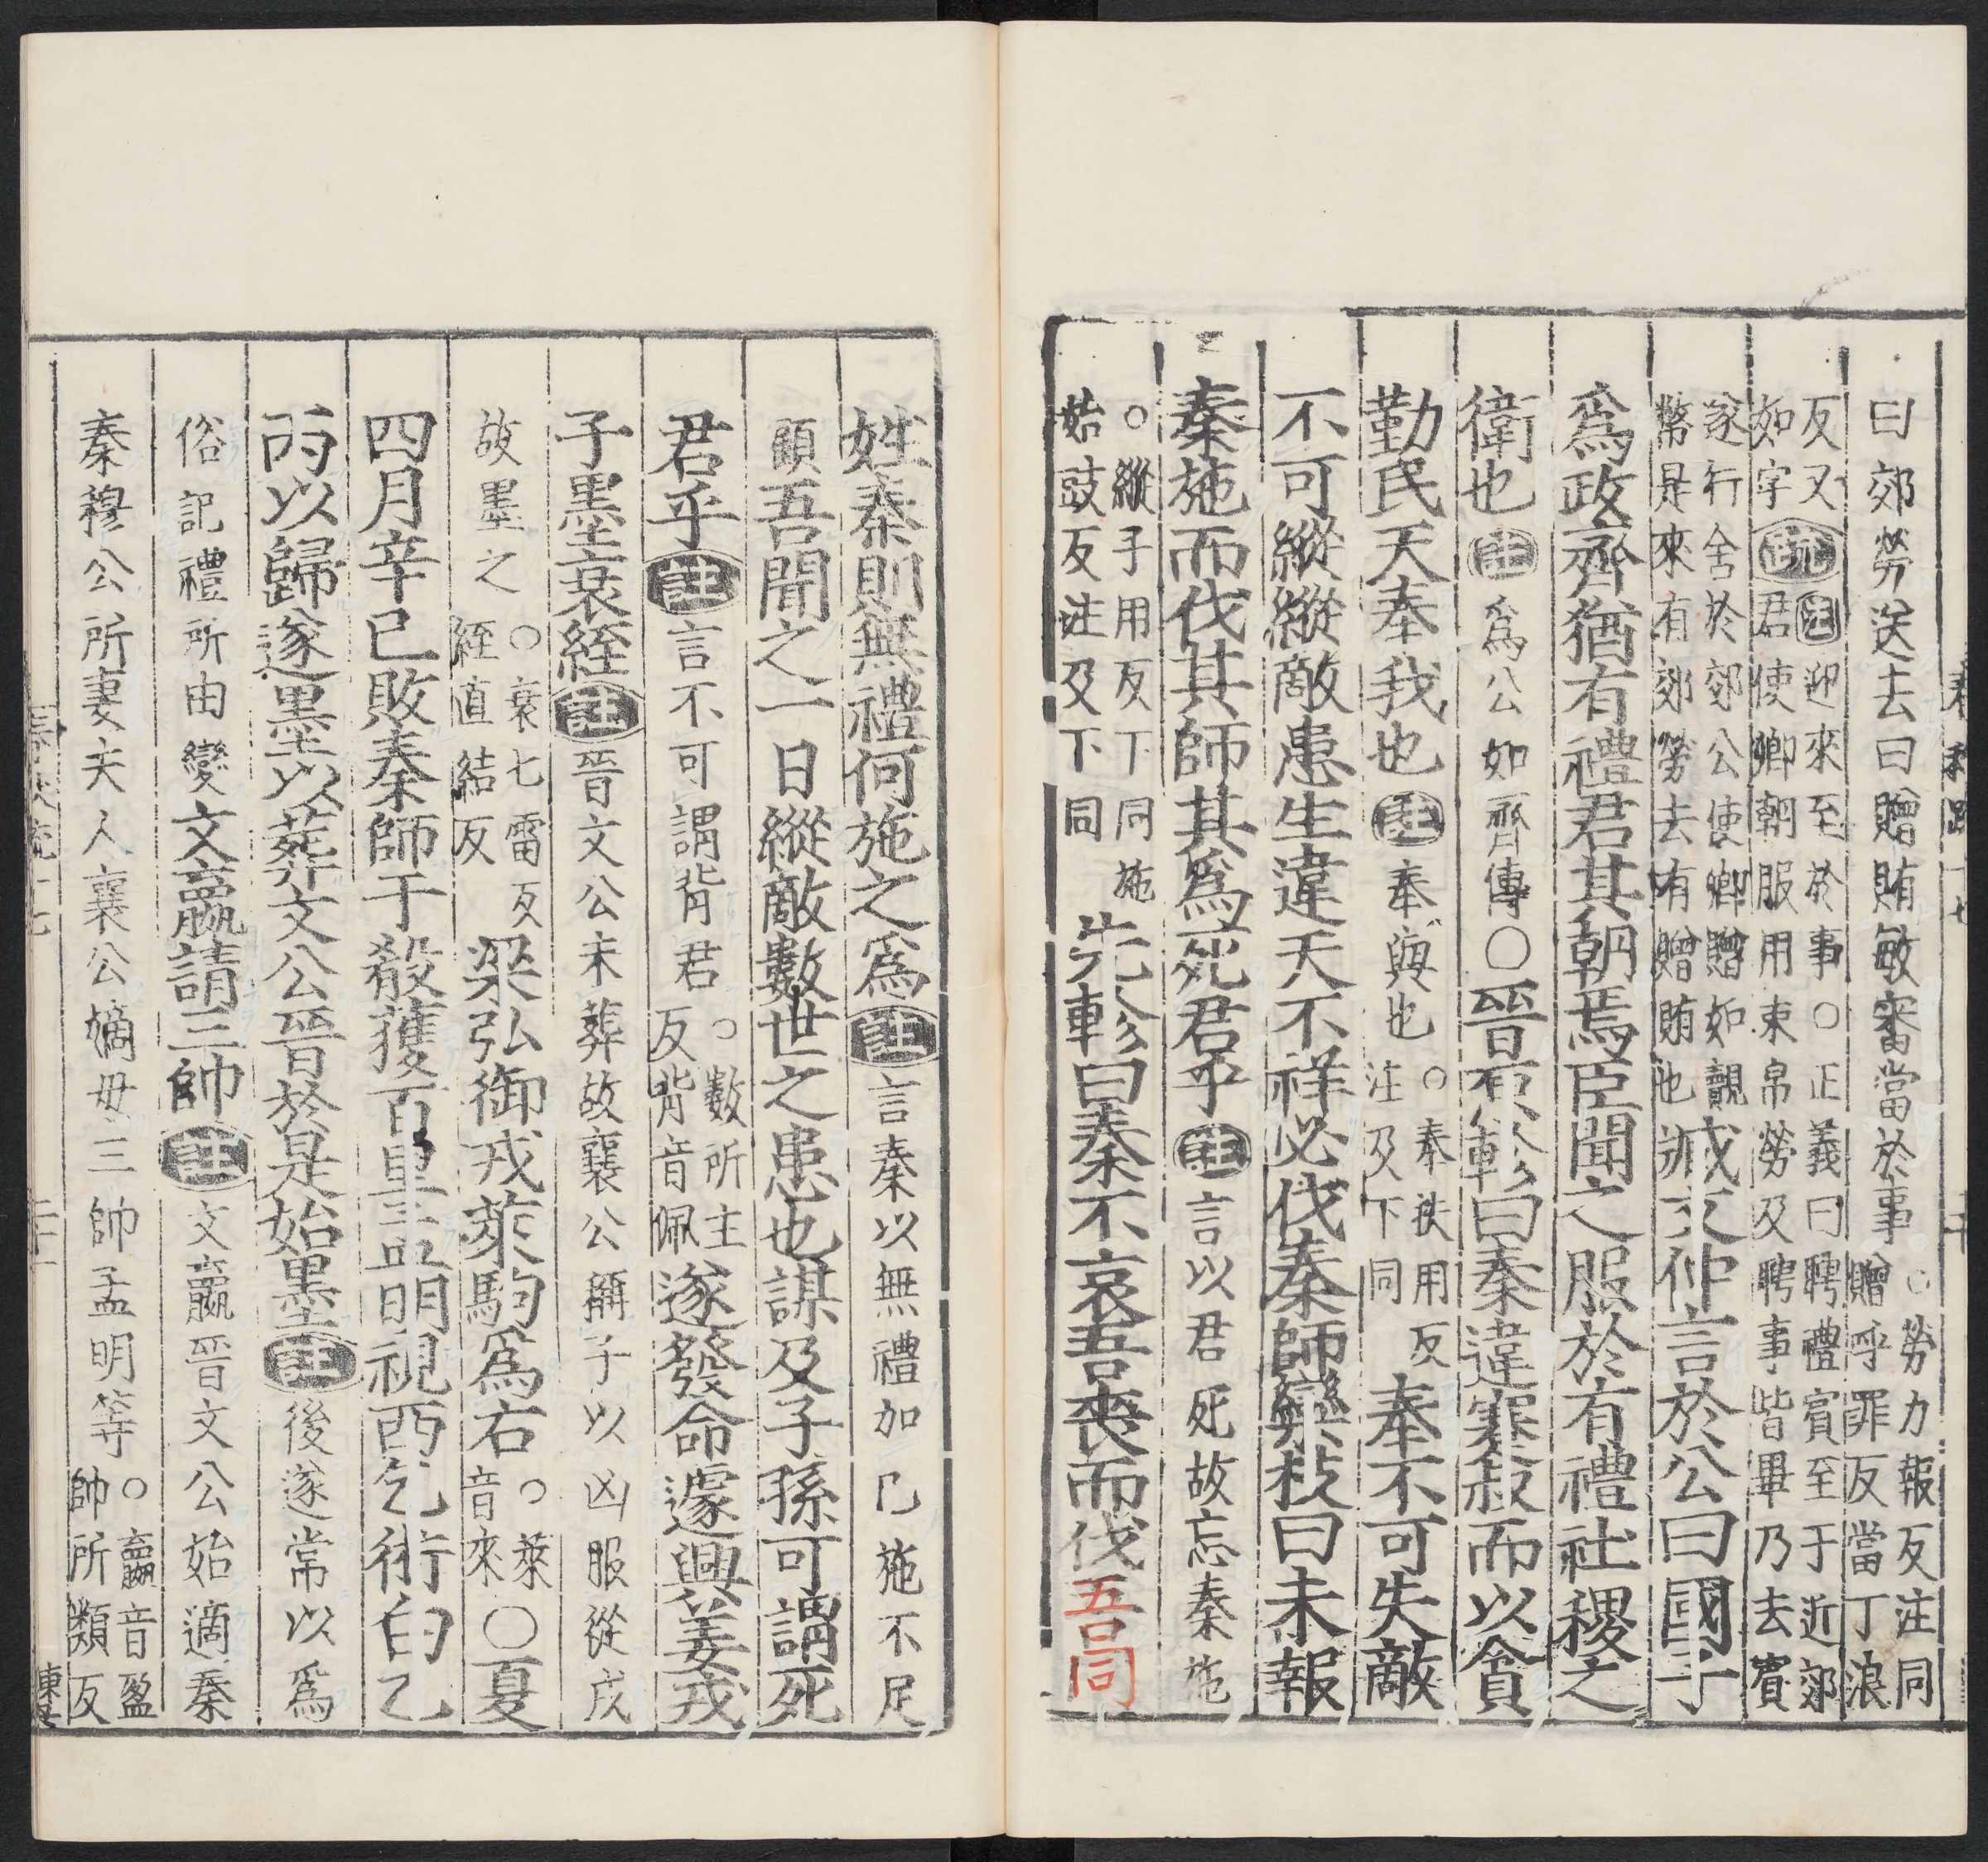 曰郊勞送去曰贈賄敏審當於事○勞力報反注同贈呼罪反當丁浪
反又如字疏注迎來至於事○正義曰聘禮賓至于近郊君使卿朝服用束帛勞及聘事皆畢乃去賓
遂行舍於郊公使卿贈如覿幣是來有郊勞去有贈賄也臧文仲言於公曰國子
爲政齊猶有禮君其朝焉臣聞之服於有禮社稷之
衛也註爲公如齊傳○晉原軫曰秦違蹇叔而以貪
勤民天奉我也註奉與也○奉扶用反注及下同奉不可失敵
不可縱縱敵患生違天不祥必伐秦師欒枝曰未報
秦施而伐其師其爲死君乎註言以君死故忘秦施
○縱子用反下同施始豉反注及下同先軫曰秦不哀吾喪而伐吾同
姓秦則無禮何施之爲註言秦以無禮加己施不足
顧吾聞之一日縱敵數世之患也謀及子孫可謂死
君乎註言不可謂背君○數所主反背音佩遂發命遽興姜戎
子墨衰絰註晉文公未葬故襄公稱子以凶服從戎
故墨之○衰七雷反絰直結反梁弘御戎萊駒爲右○萊音來○夏
四月辛巳敗秦師于殽獲百里孟明視西乞術白乙
丙以歸遂墨以葬文公晉於是始墨註後遂常以爲
俗記禮所由變文嬴請三帥註文嬴晉文公始適秦
秦穆公所妻夫人襄公嫡母三帥孟明等○嬴音盈帥所類反